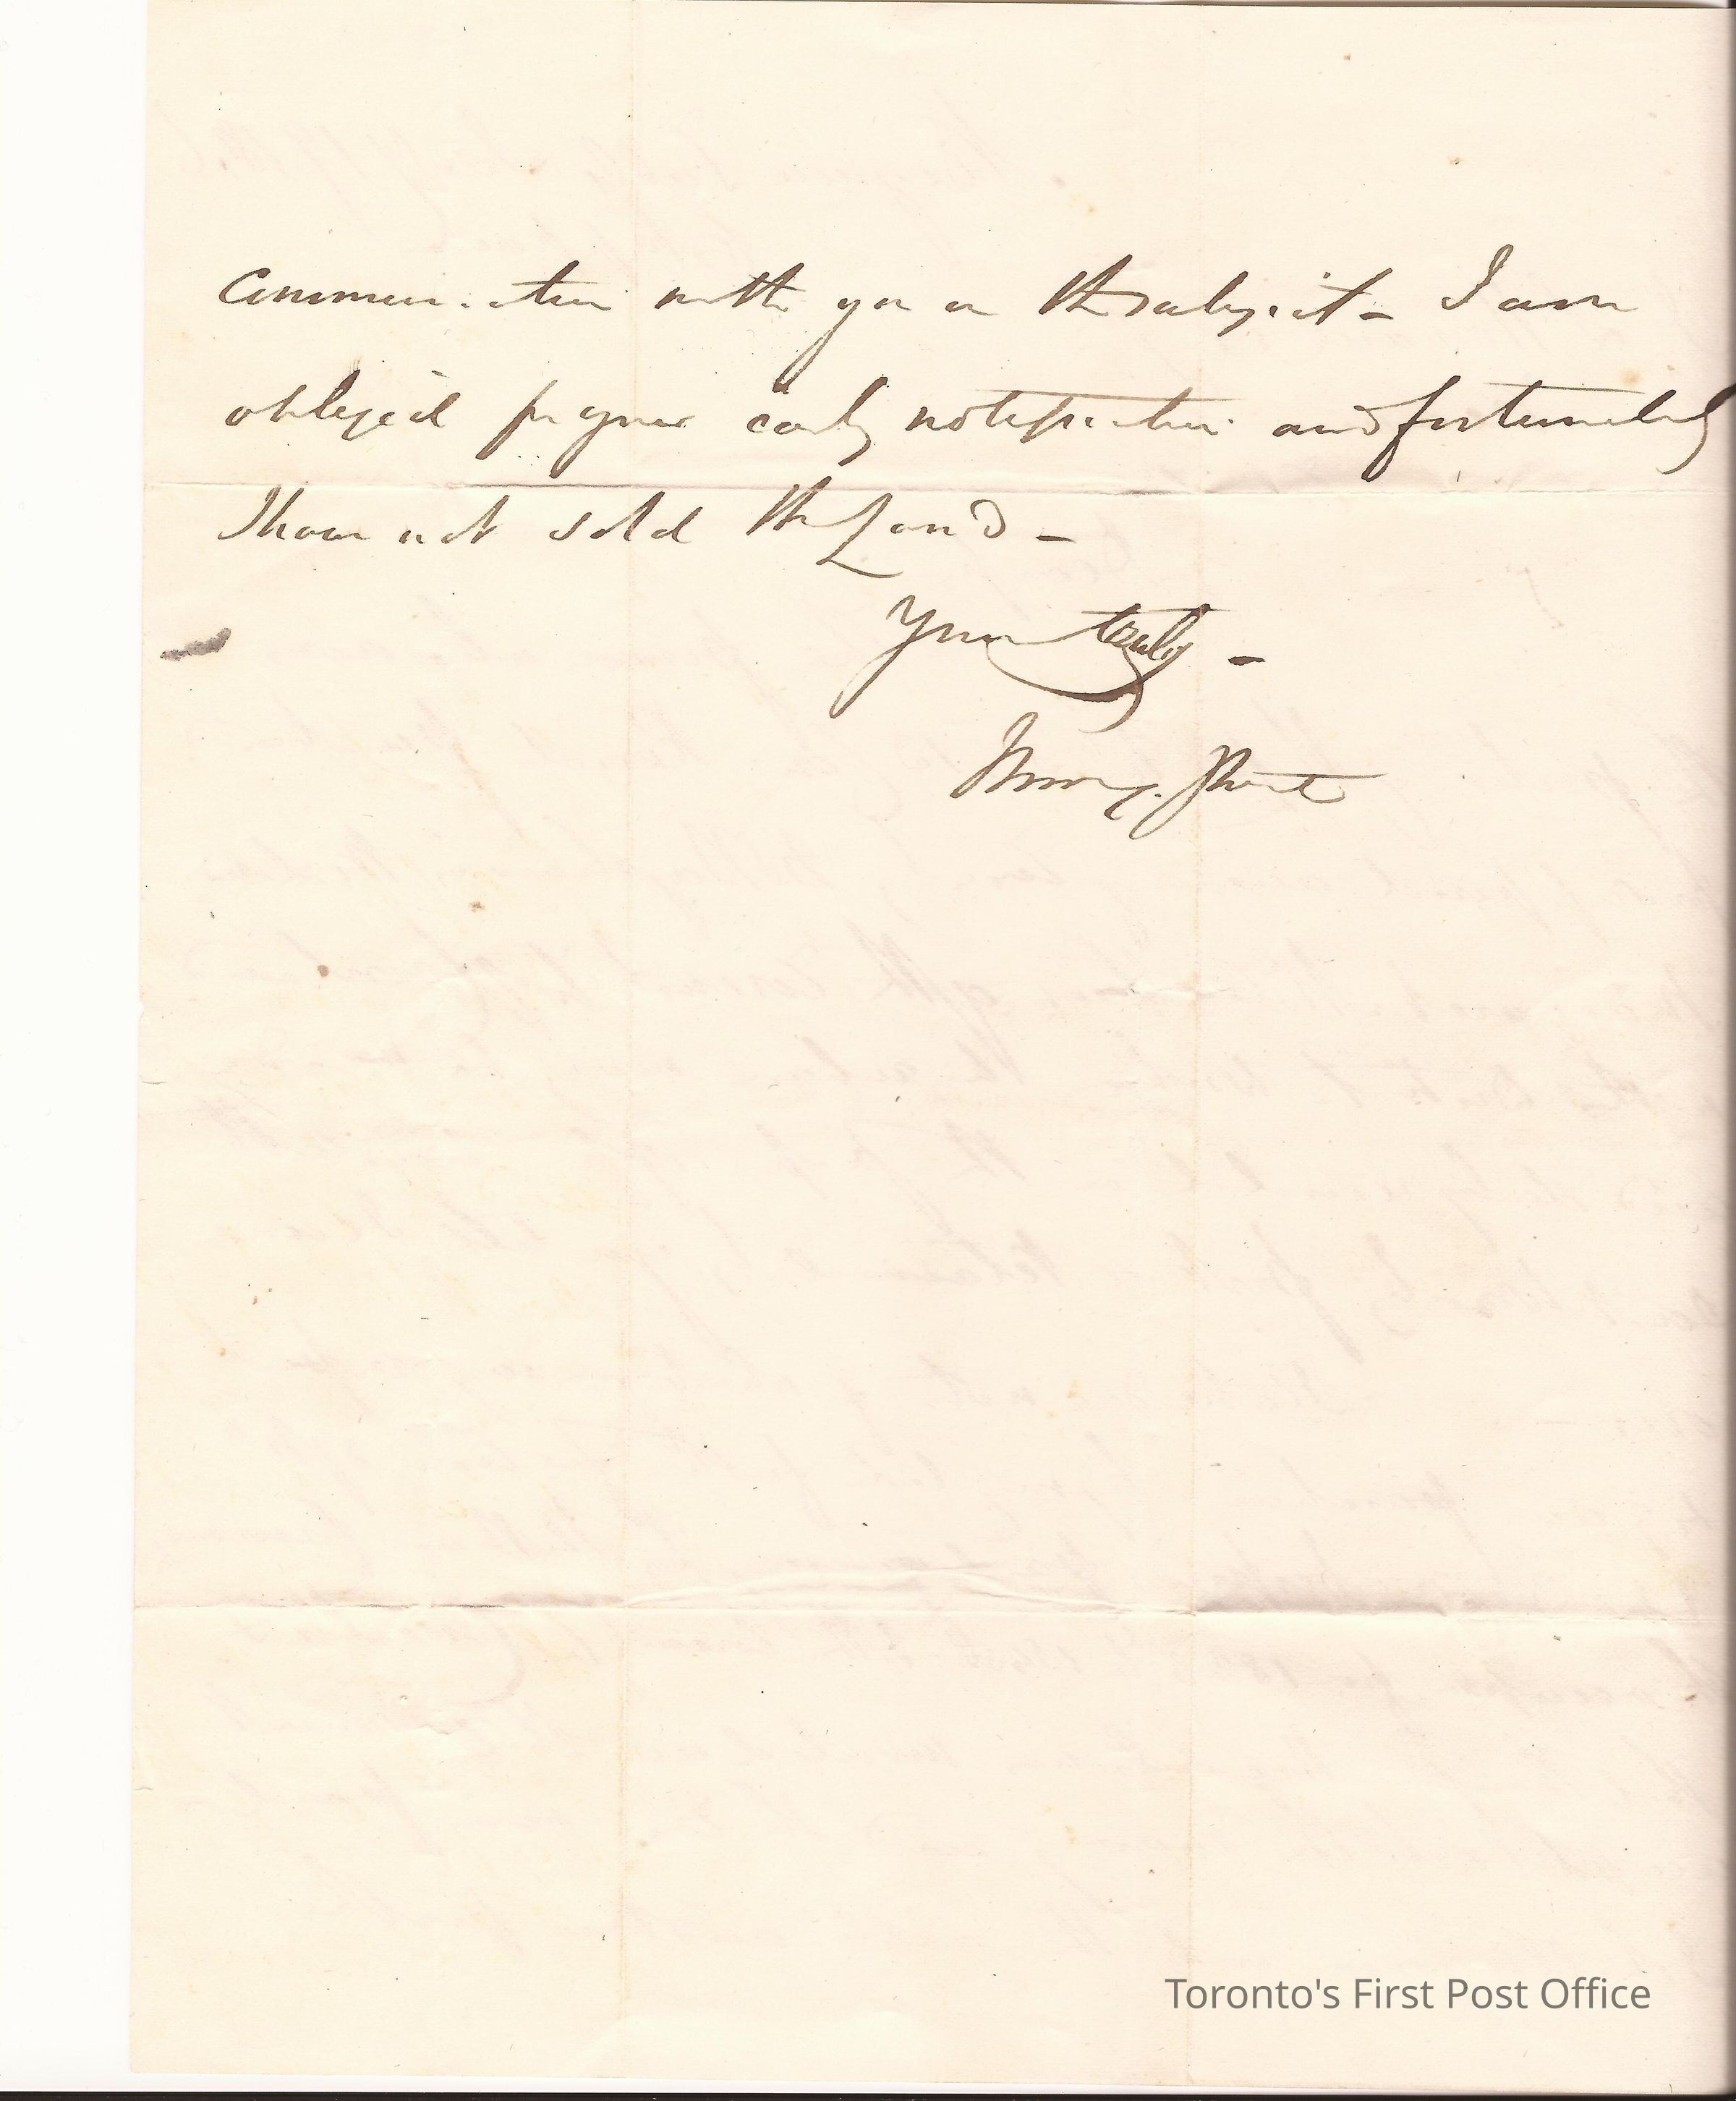 communication with you on the subject - I am
obliged for your early notification and fortunately
I have not sold the Land -
Yours truly -
Toronto's First Post Office